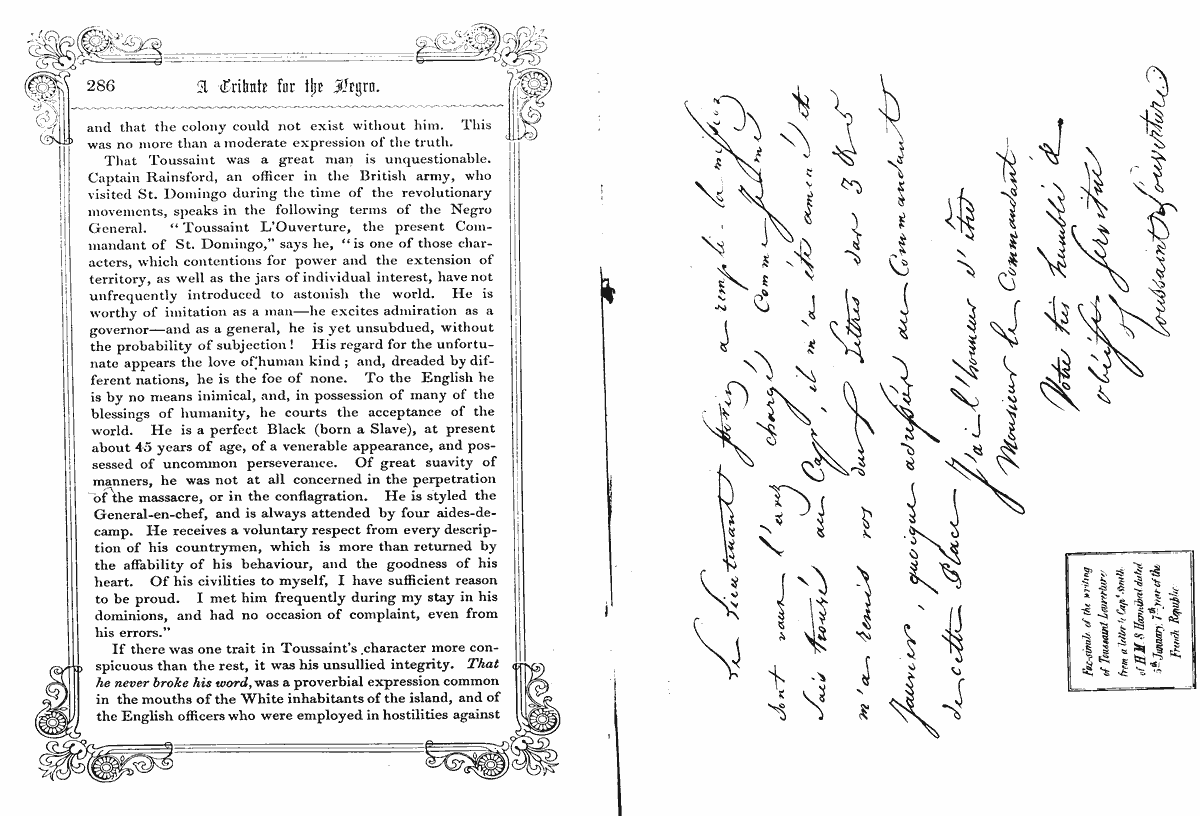 286
A Tribute for the Negro.
and that the colony could not exist without him. This
was no more than a moderate expression of the truth.
That Toussaint was a great man is unquestionable.
Captain Rainsford, an officer in the British army, who
visited St. Domingo during the time of the revolutionary
movements, speaks in the following terms of the Negro
General. “Toussaint L'Ouverture, the present Com-
mandant of St. Domingo,” says he, “is one of those char-
acters, which contentions for power and the extension of
territory, as well as the jars of individual interest, have not
unfrequently introduced to astonish the world. He is
worthy of imitation as a man—he excites admiration as a
governor—and as a general, he is yet unsubdued, without
the probability of subjection! His regard for the unfortu-
nate appears the love of human kind; and, dreaded by dif-
ferent nations, he is the foe of none. To the English he
is by no means inimical, and, in possession of many of the
blessings of humanity, he courts the acceptance of the
world. He is a perfect Black (born a Slave), at present
about 45 years of age, of a venerable appearance, and pos-
sessed of uncommon perseverance. Of great suavity of
manners, he was not at all concerned in the perpetration
of the massacre, or in the conflagration. He is styled the
General-en-chef, and is always attended by four aides-de-
camp. He receives a voluntary respect from every descrip-
tion of his countrymen, which is more than returned by
the affability of his behaviour, and the goodness of his
heart. Of his civilities to myself, I have sufficient reason
to be proud. I met him frequently during my stay in his
dominions, and had no occasion of complaint, even from
his errors.”
If there was one trait in Toussaint's character more con-
spicuous than the rest, it was his unsullied integrity. That
he never broke his word, was a proverbial expression common
in the mouths of the White inhabitants of the island, and of
the English officers who were employed in hostilities against
Le Lieutenant a rempli la mission
dont vous l'avez chargé, Comme Je me
Suis trouvé au Cap, il m'a été amené et
m'a remis vos deux Lettres des 3 & 5
Janvier, quoique adressée au Commandant
de cette Place J'ai l'honneur d'être
Monsieur le Commandant
Votre très humble &
obéiss Serviteur
Toussaint Louverture
Fac-simile of the writing
of Toussaint Louverture
from a letter to Capt Smith
of H M S Hannibal dated
5th January, 7th year of the
French Republic